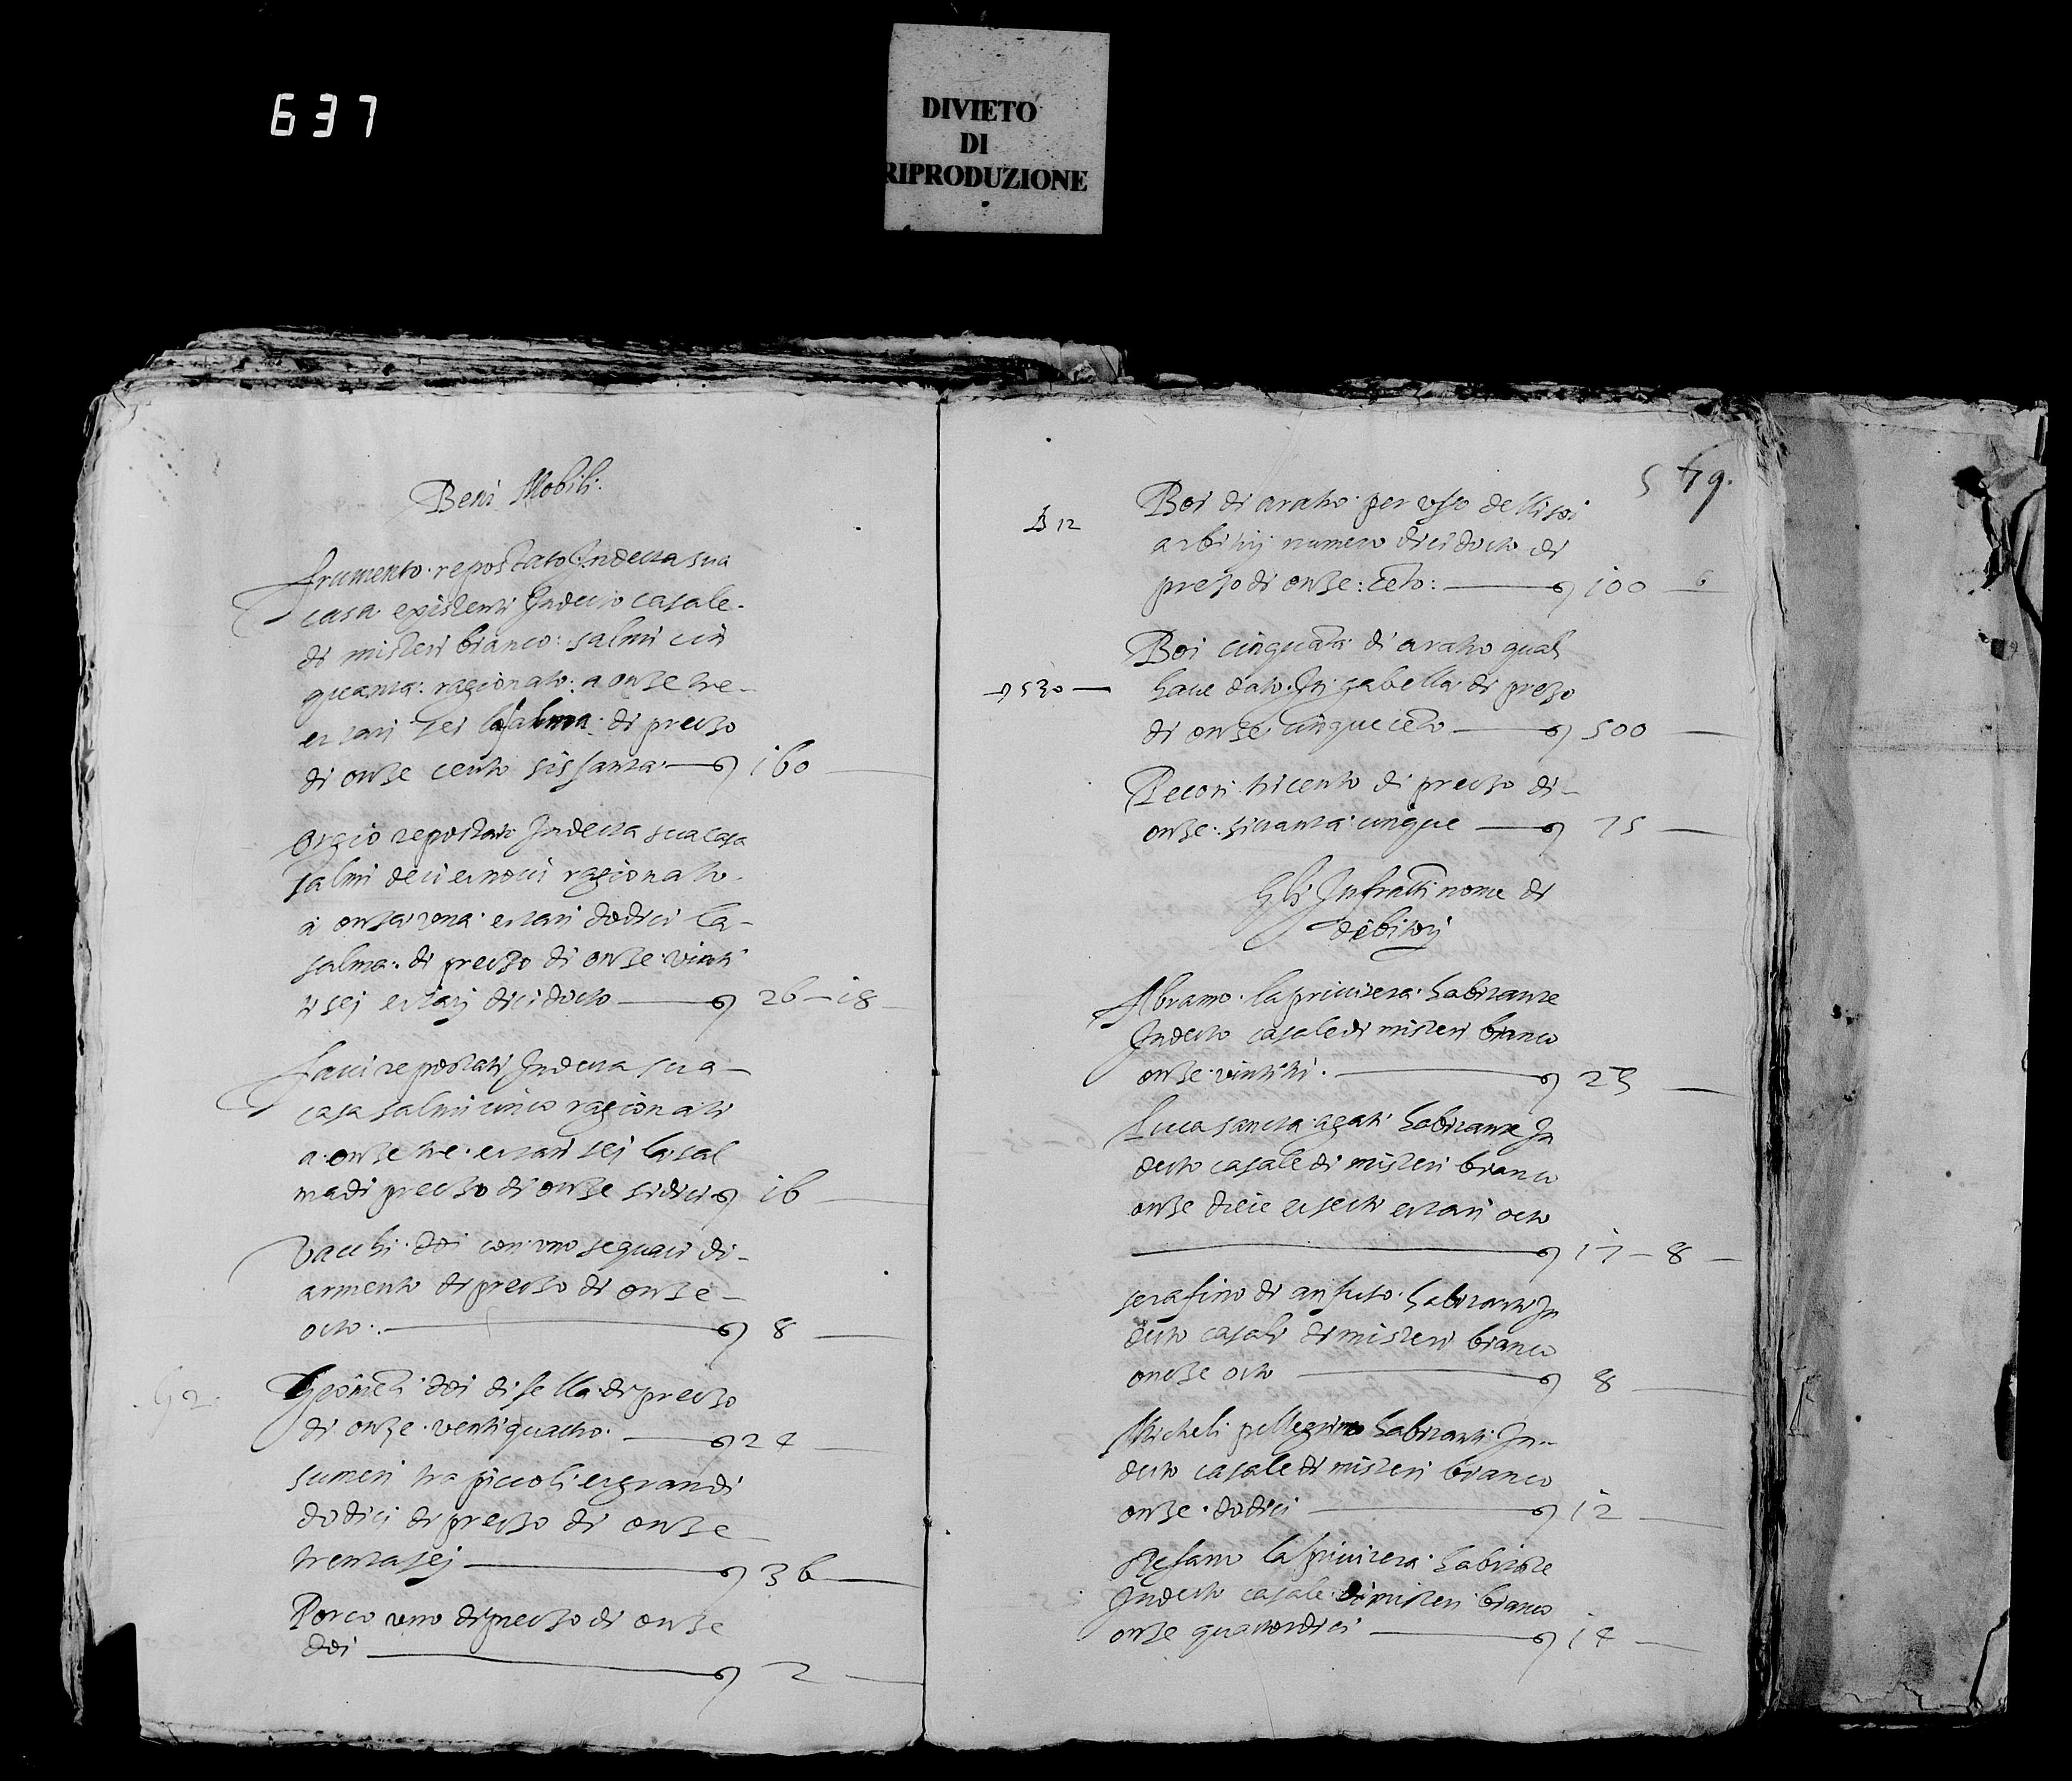 637
DIVIETO
DI
RIPRODUZIONE
Beni Mobili.
frumento repostato In detta sua
casa existenti In detto casale
di misteri bianco: salmi cin
quanta: ragionato: a onze tre
et tari sei la salma: di prezzo
di onze cento sissanta 160
Orgio repostato In detta sua casa
salmi deci et novi ragionato
a onza una et tari dodici la
salma. di prezzo di onze vinti
sei et tarj dicidotto 26-18
Favi repostati In detta sua
casa salmi cinco ragionati
a onze tre. et tari sei la sal
ma di prezzo di onze sidici 16
Vacchi doi con uno sequaci di
armento di prezzo di onze
octo. 8
Giomenti doi di sella di prezzo
di onze ventiquattro. 24
sumeri tra piccoli et grandi
dodici di prezzo di onze
trentasej 36
Porco uno di prezzo di onze
doi 2
569.
B 12
Boi di aratro per uso delli soi
arbitrij numero dicidotto di
prezo di onze: cēto: 100 6
Boi cinquāta di aratro quali
530
have dato In gabella di prezo
di onze cinquecēto 500
Pecori tricento di prezzo di
onze: sittanta cinque 75
Gli Infratti nome di
debitorj
Abramo la privitera habitante
In detto casale di misteri bianco
onze vintitri. 23
Luca sancta agati habitante In
detto casale di misteri bianco
onze diece et setti et tari octo
17-8
serafino di anfuso habitanti In
detto casali di misteri bianco
onze octo 8
Micheli pellegrino habitanti In
detto casale di misteri bianco
onze dodici 12
Stefano la privitera habitāte
In detto casale di misteri bianco
onze quattordici 14